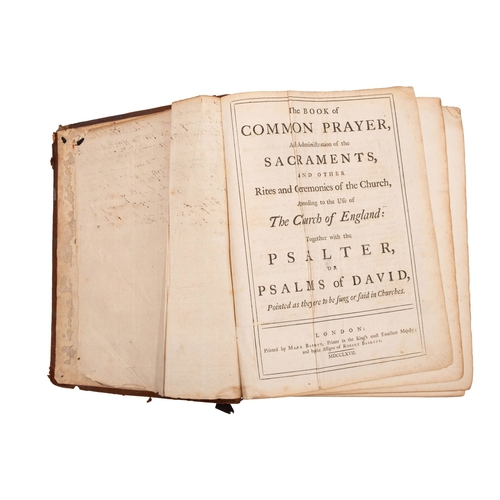 The BOOK of
COMMON PRAYER,
And Administration of the
SACRAMENTS,
AND OTHER
Rites and Ceremonies of the Church,
According to the Use of
The Church of England:
Together with the
PSALTER,
OR
PSALMS of DAVID,
Pointed as they are to be sung or said in Churches.
LONDON:
Printed by MARK BASKETT, Printer to the King's most Excellent Majesty;
and by the Assigns of ROBERT BASKETT.
MDCCLXVII.